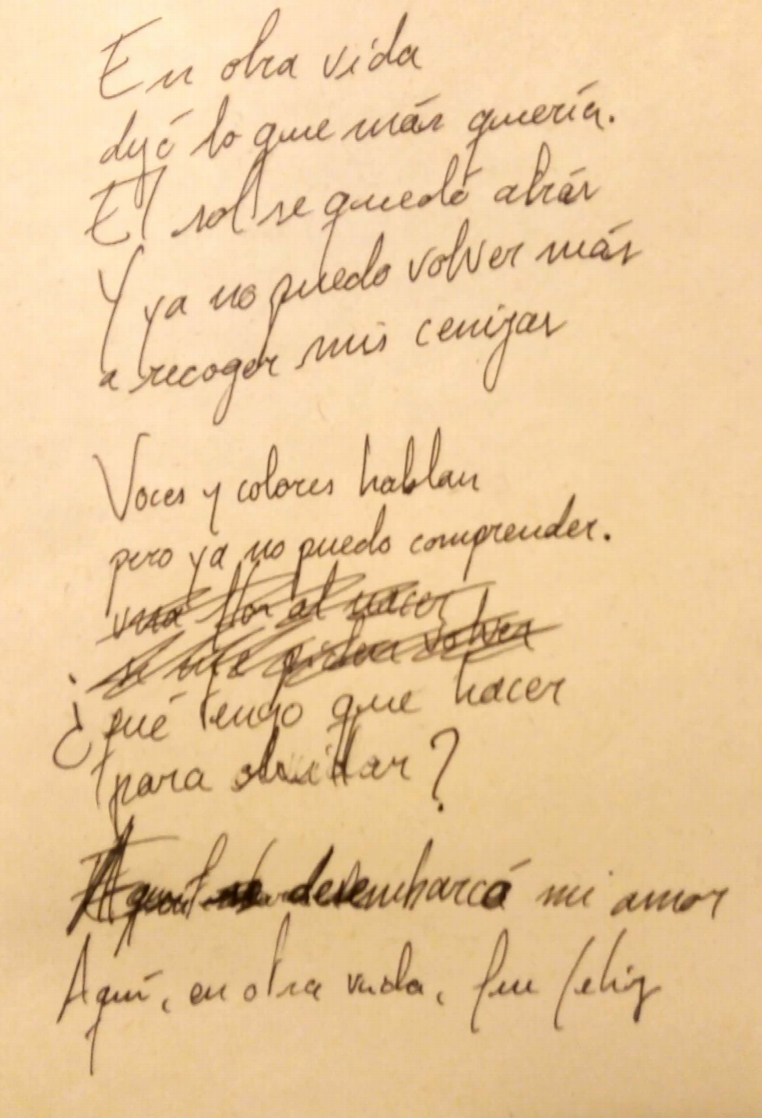 En otra vida
dejé lo que más quería.
El sol se quedó atrás
Y ya no puedo volver más
a recoger mis cenizas
Voces y colores hablan
pero ya no puedo comprender.
una flor al nacer
volver
¿qué tengo que hacer
para olvidar?
Aquí desembarcó mi amor
Aquí, en otra vida, fui feliz